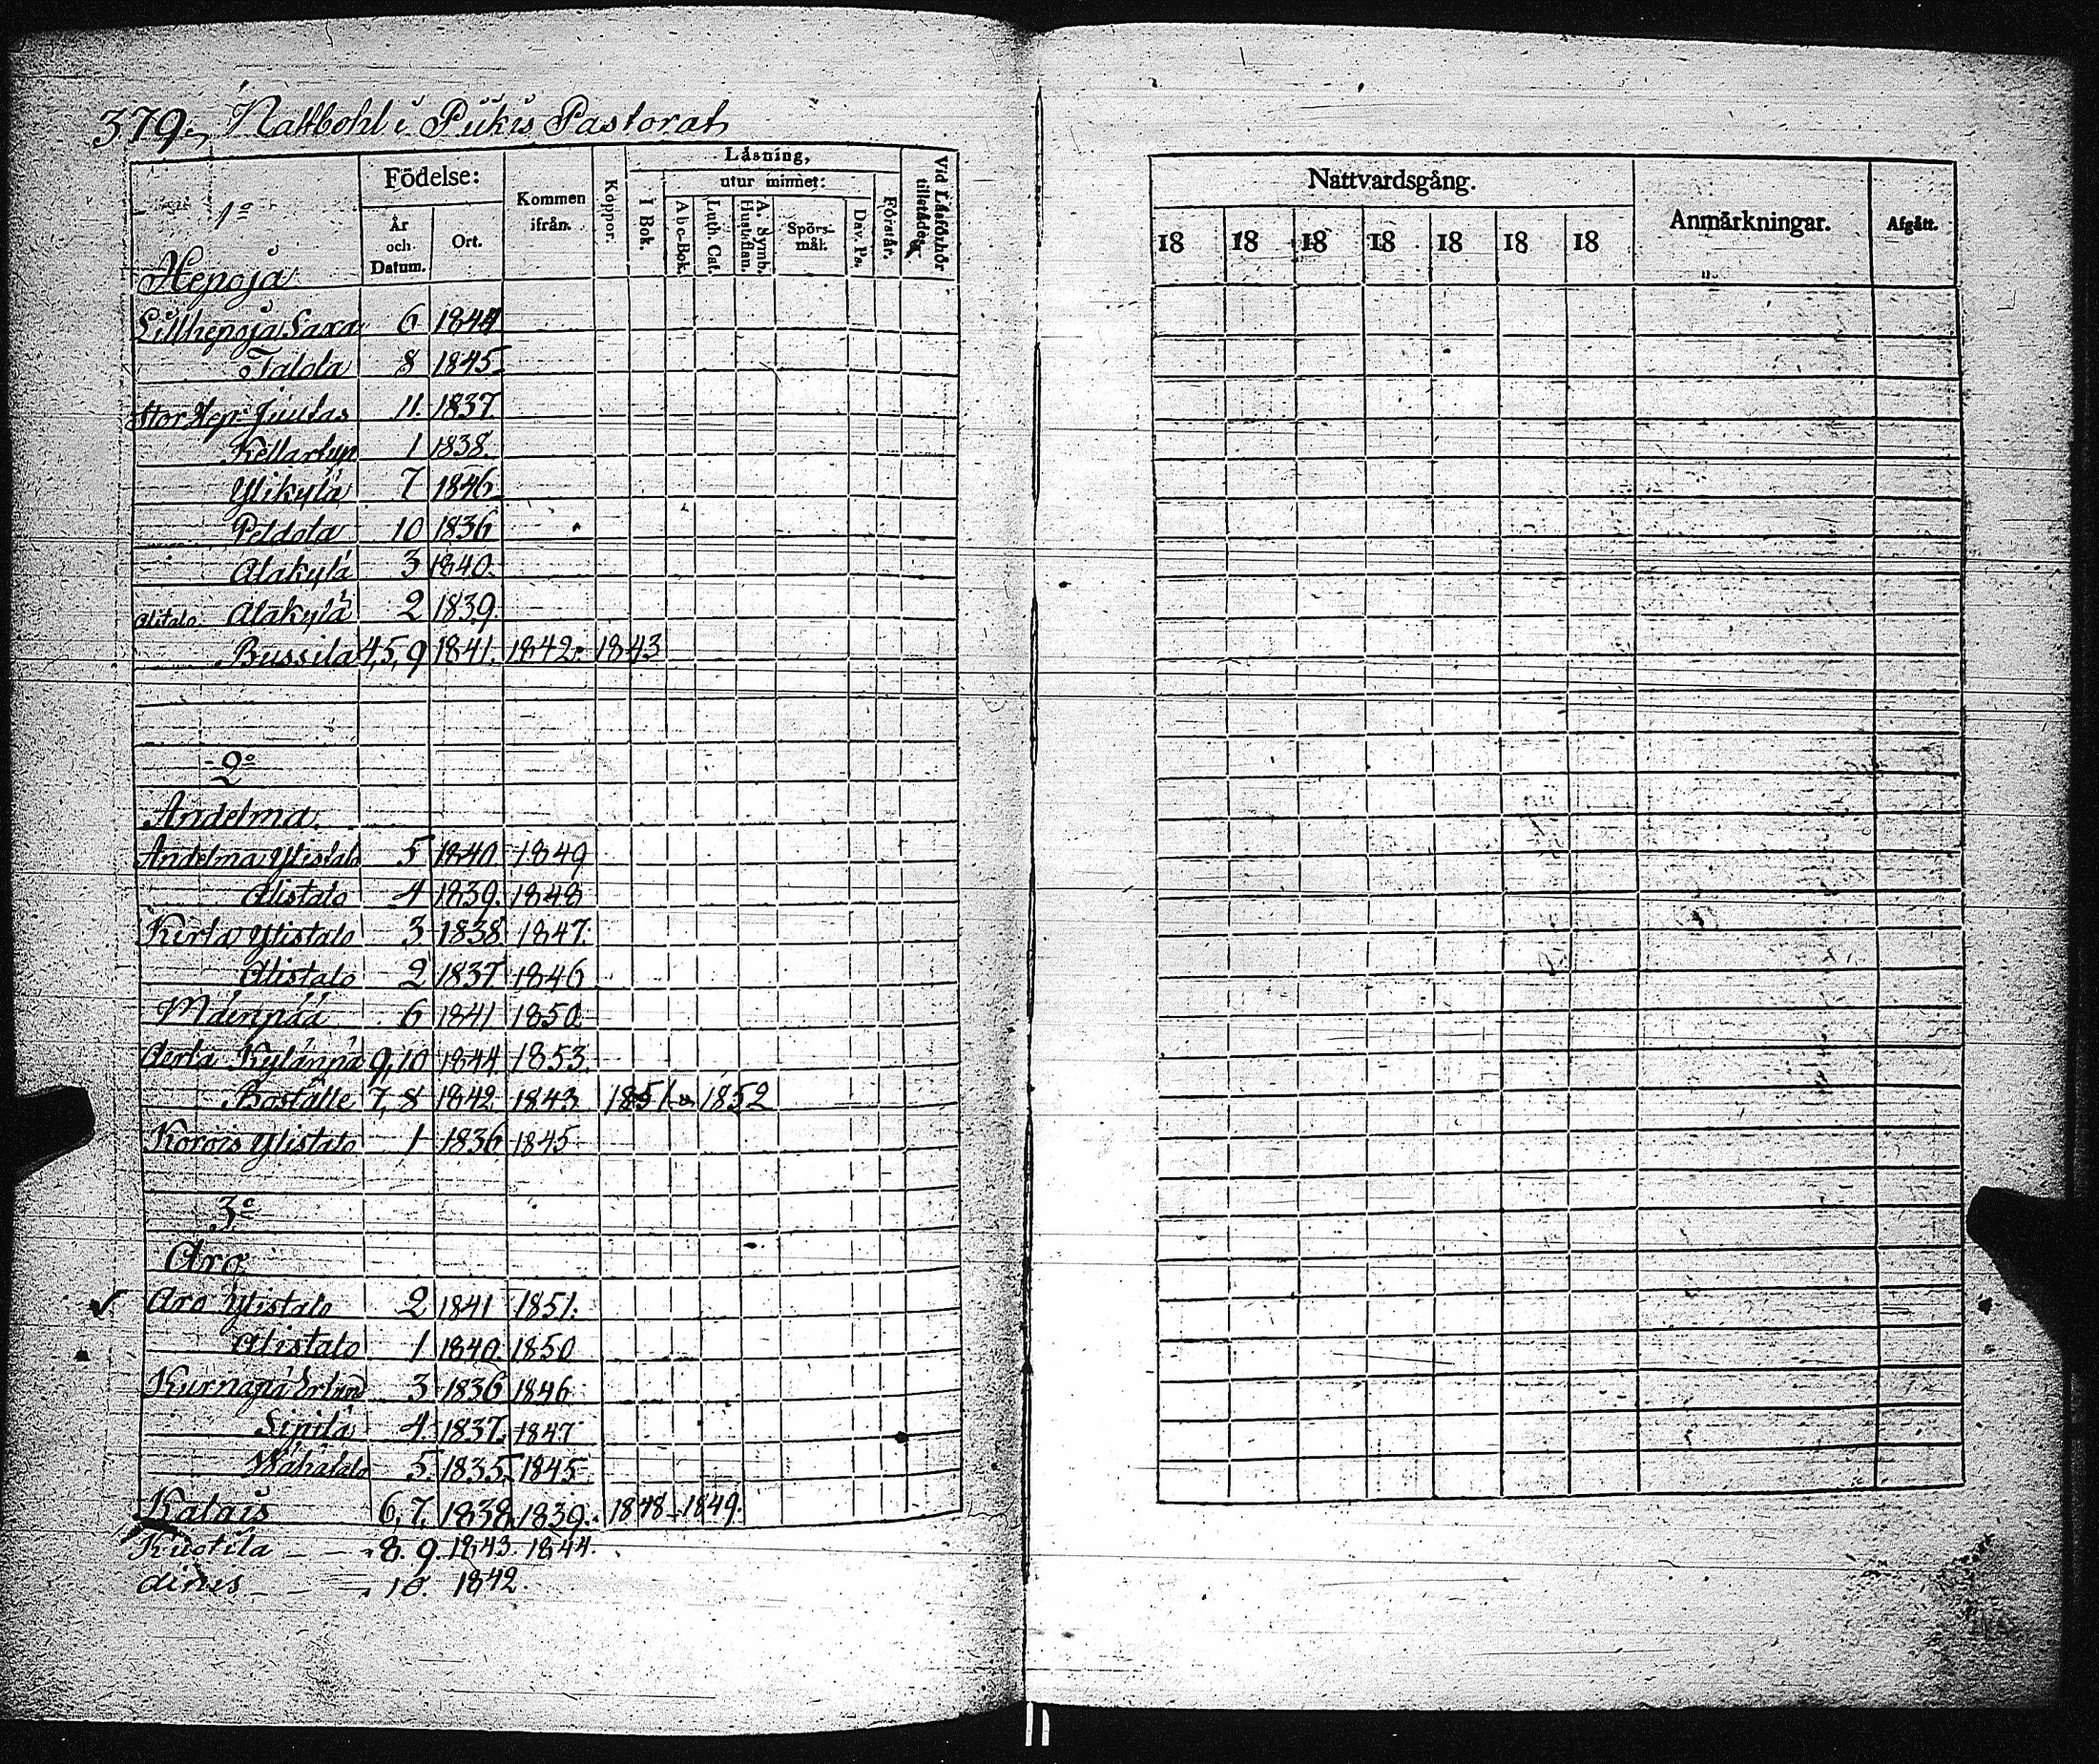 379. Nattbohl i Pikis Pastorat
Födelse:
Kommen ifrån.
Koppor.
Läsning,
utur minnet:
Vid Läsförhör tillstädes
År och Datum.
Ort.
I Bok.
Abc-Bok.
Luth. Cat.
A. Symb. Hustaflan.
Spörs-mål.
Dav. Ps.
Förstår.
1º
Hepoja
Lillhepoja Saxa 6 1844
Talola 8 1845
Stor Hep: Juutas 11. 1837
1 1838
Ylikylä 7 1846
Peldola 10 1836
Alakylä 3 1840.
Alitalo Alakylä 2 1839.
Bussila 4,5,9 1841. 1842. 1843
2º
Andelma.
Andelma Ylistalo 5 1840 1849
Alistalo 4 1839. 1848
Kerla Ylistalo 3 1838 1847.
Alistalo 2 1837 1846
Mäenpää 6 1841 1850
Kylänpä 9,10 1844 1853.
Boställe 7,8 1842 1843 1851 1852
Korois Ylistalo 1 1836 1845
3º
Aro
Aro Ylistalo 2 1841 1851.
Alistalo 1 1840. 1850
Kurnapä 3 1836 1846
Sipilä 4 1837. 1847
Wähätalo 5 1835 1845
Kalais 6,7, 1838. 1839. 1848 1849.
Kustila 8. 9. 1843. 1844.
10. 1842.
Nattvardsgång.
Anmärkningar.
Afgått.
18 18 18 18 18 18 18